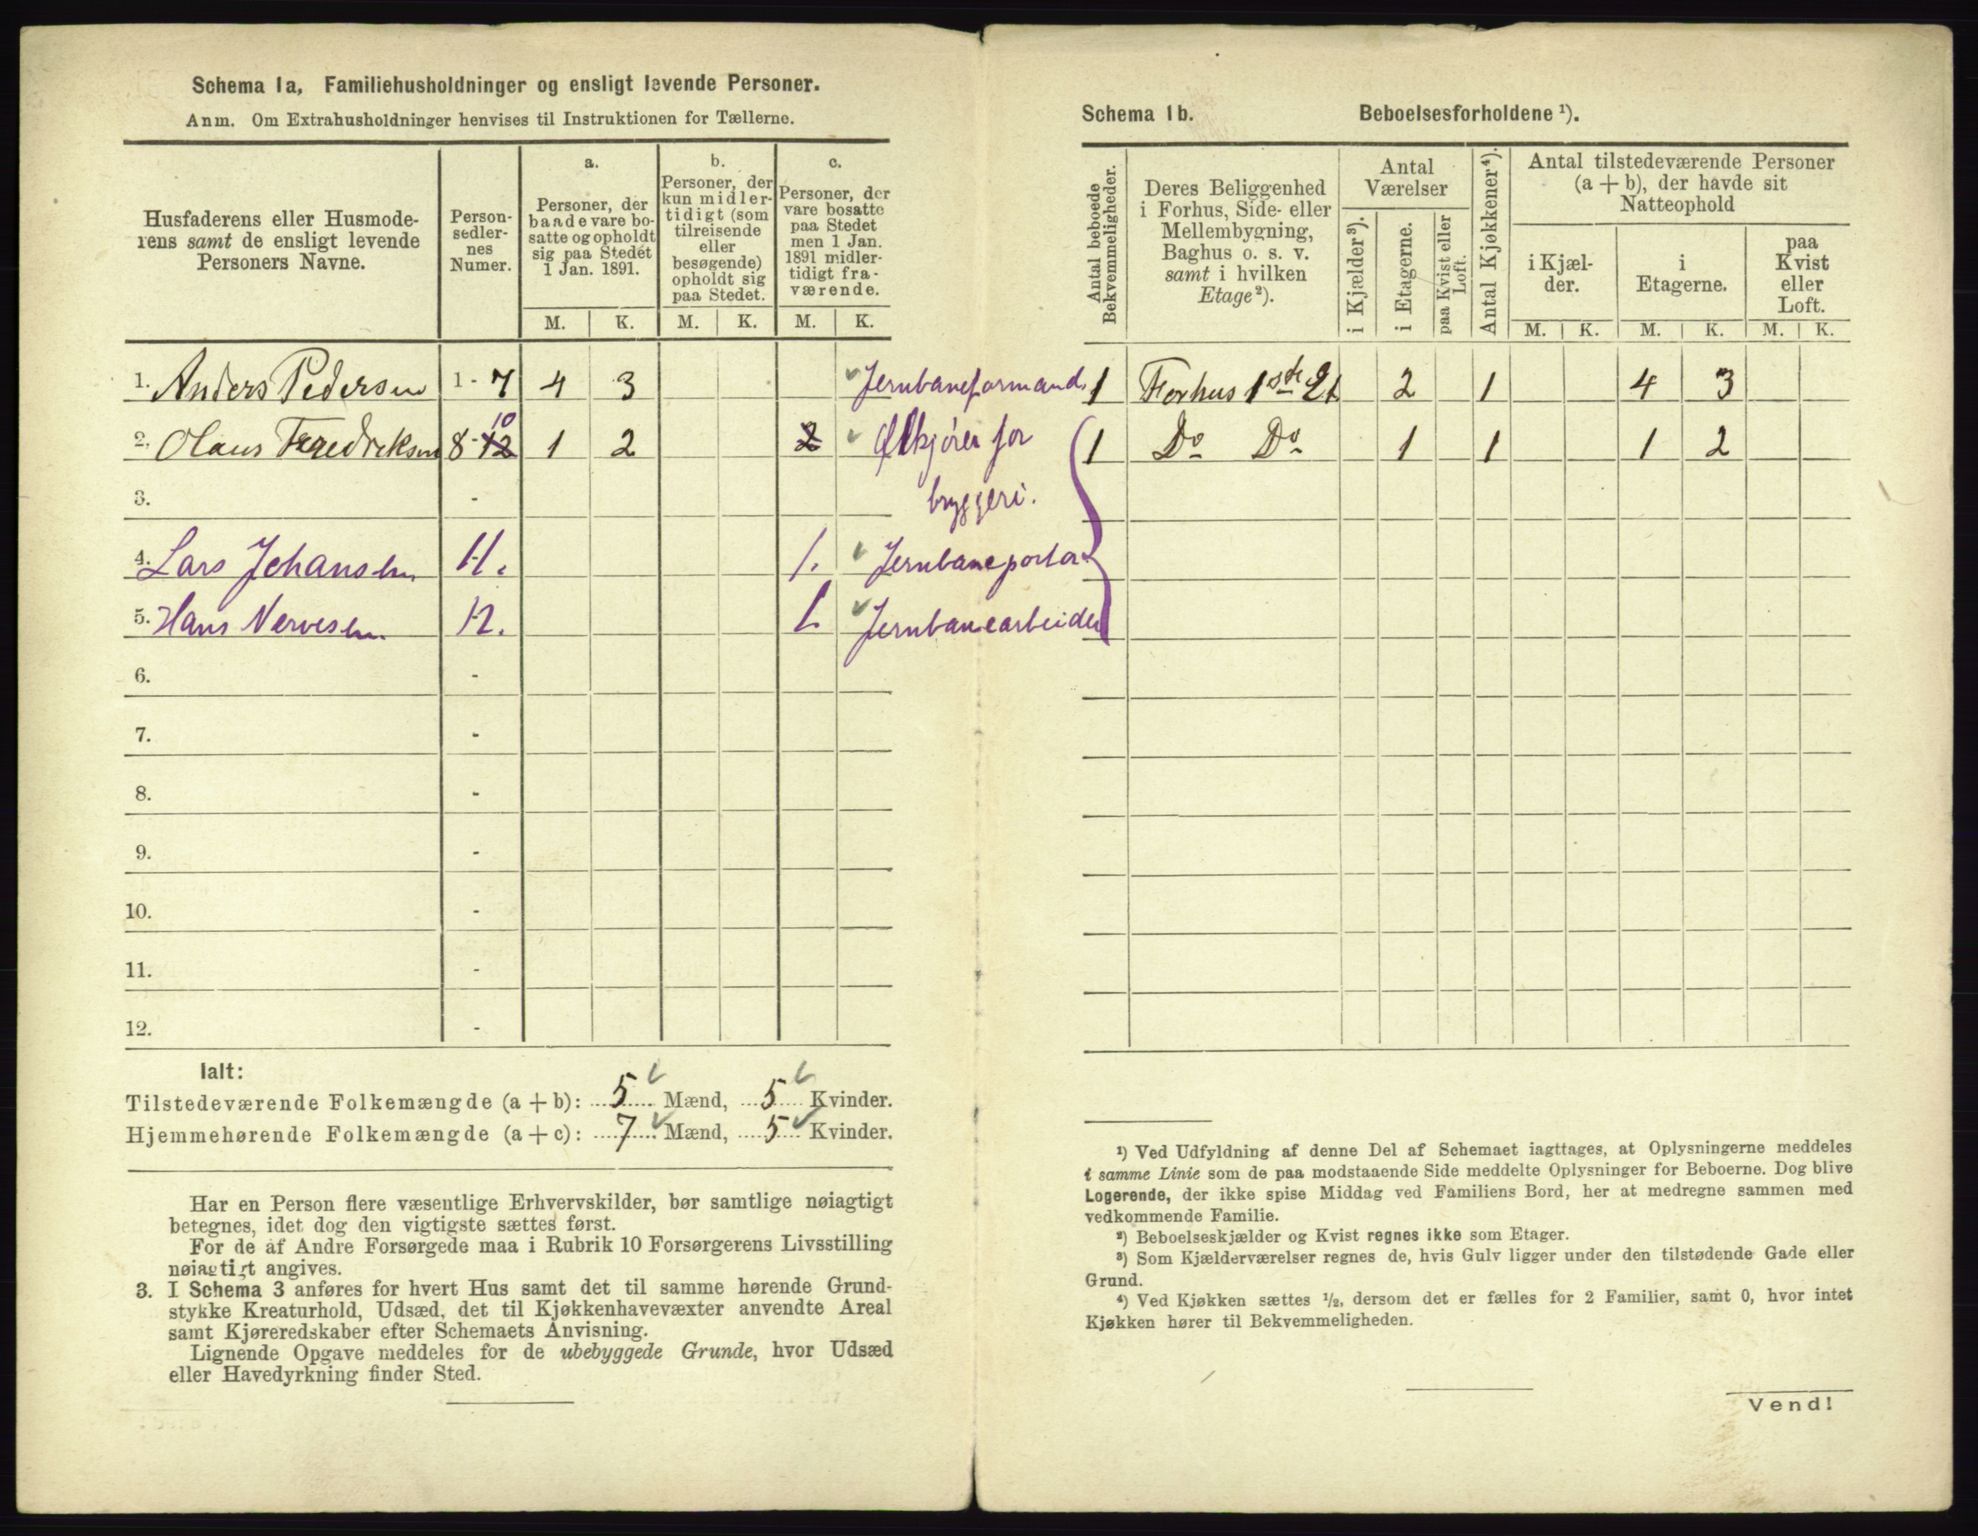 Schema 1a, Familiehusholdninger og ensligt levende Personer.
Anm. Om Extrahusholdninger henvises til Instruktionen for Tællerne.
Husfaderens eller Husmode-
rens samt de ensligt levende
Personers Navne.
Person-
sedler-
nes
Numer.
a.
Personer, der
baade vare bo-
satte og opholdt
sig paa Stedet
1 Jan. 1891.
b.
Personer, der
kun midler-
tidigt (som
tilreisende
eller
besøgende)
opholdt sig
paa Stedet.
c.
Personer, der
vare bosatte
paa Stedet
men 1 Jan.
1891 midler-
tidigt fra-
værende.
M. K. M. K. M. K.
1. Anders Pedersen 1 - 7 4 3 Jernbaneformand
2. Olaus Fredriksen 8 - 12 10 1 2 2 Ølkjører for
3. - bryggeri.
4. Lars Johansen 11. 1. Jernbaneportør
5. Hans Nervesen 12. 1. Jernbanearbeider
6. -
7. -
8. -
9. -
10. -
11. -
12. -
Ialt:
Tilstedeværende Folkemængde (a + b): 5 Mænd, 5 Kvinder.
Hjemmehørende Folkemængde (a + c): 7 Mænd, 5 Kvinder.
Har en Person flere væsentlige Erhvervskilder, bør samtlige nøiagtigt
betegnes, idet dog den vigtigste sættes først.
For de af Andre Forsørgede maa i Rubrik 10 Forsørgerens Livsstilling
nøiagtigt angives.
3. I Schema 3 anføres for hvert Hus samt det til samme hørende Grund-
stykke Kreaturhold, Udsæd, det til Kjøkkenhavevæxter anvendte Areal
samt Kjøreredskaber efter Schemaets Anvisning.
Lignende Opgave meddeles for de ubebyggede Grunde, hvor Udsæd
eller Havedyrkning finder Sted.
Schema 1b. Beboelsesforholdene ¹).
Antal beboede
Bekvemmeligheder.
Deres Beliggenhed
i Forhus, Side- eller
Mellembygning,
Baghus o. s. v.
samt i hvilken
Etage²).
Antal
Værelser
i Kjælder³).
i Etagerne.
paa Kvist eller
Loft.
Antal Kjøkkener⁴).
Antal tilstedeværende Personer
(a + b), der havde sit
Natteophold
i Kjæl-
der.
i
Etagerne.
paa
Kvist
eller
Loft.
M. K. M. K. M. K.
1 Forhus 1ste Et 2 1 4 3
1 Do Do 1 1 1 2
¹) Ved Udfyldning af denne Del af Schemaet iagttages, at Oplysningerne meddeles
i samme Linie som de paa modstaaende Side meddelte Oplysninger for Beboerne. Dog blive
Logerende, der ikke spise Middag ved Familiens Bord, her at medregne sammen med
vedkommende Familie.
²) Beboelseskjælder og Kvist regnes ikke som Etager.
³) Som Kjælderværelser regnes de, hvis Gulv ligger under den tilstødende Gade eller
Grund.
⁴) Ved Kjøkken sættes ½, dersom det er fælles for 2 Familier, samt 0, hvor intet
Kjøkken hører til Bekvemmeligheden.
Vend!